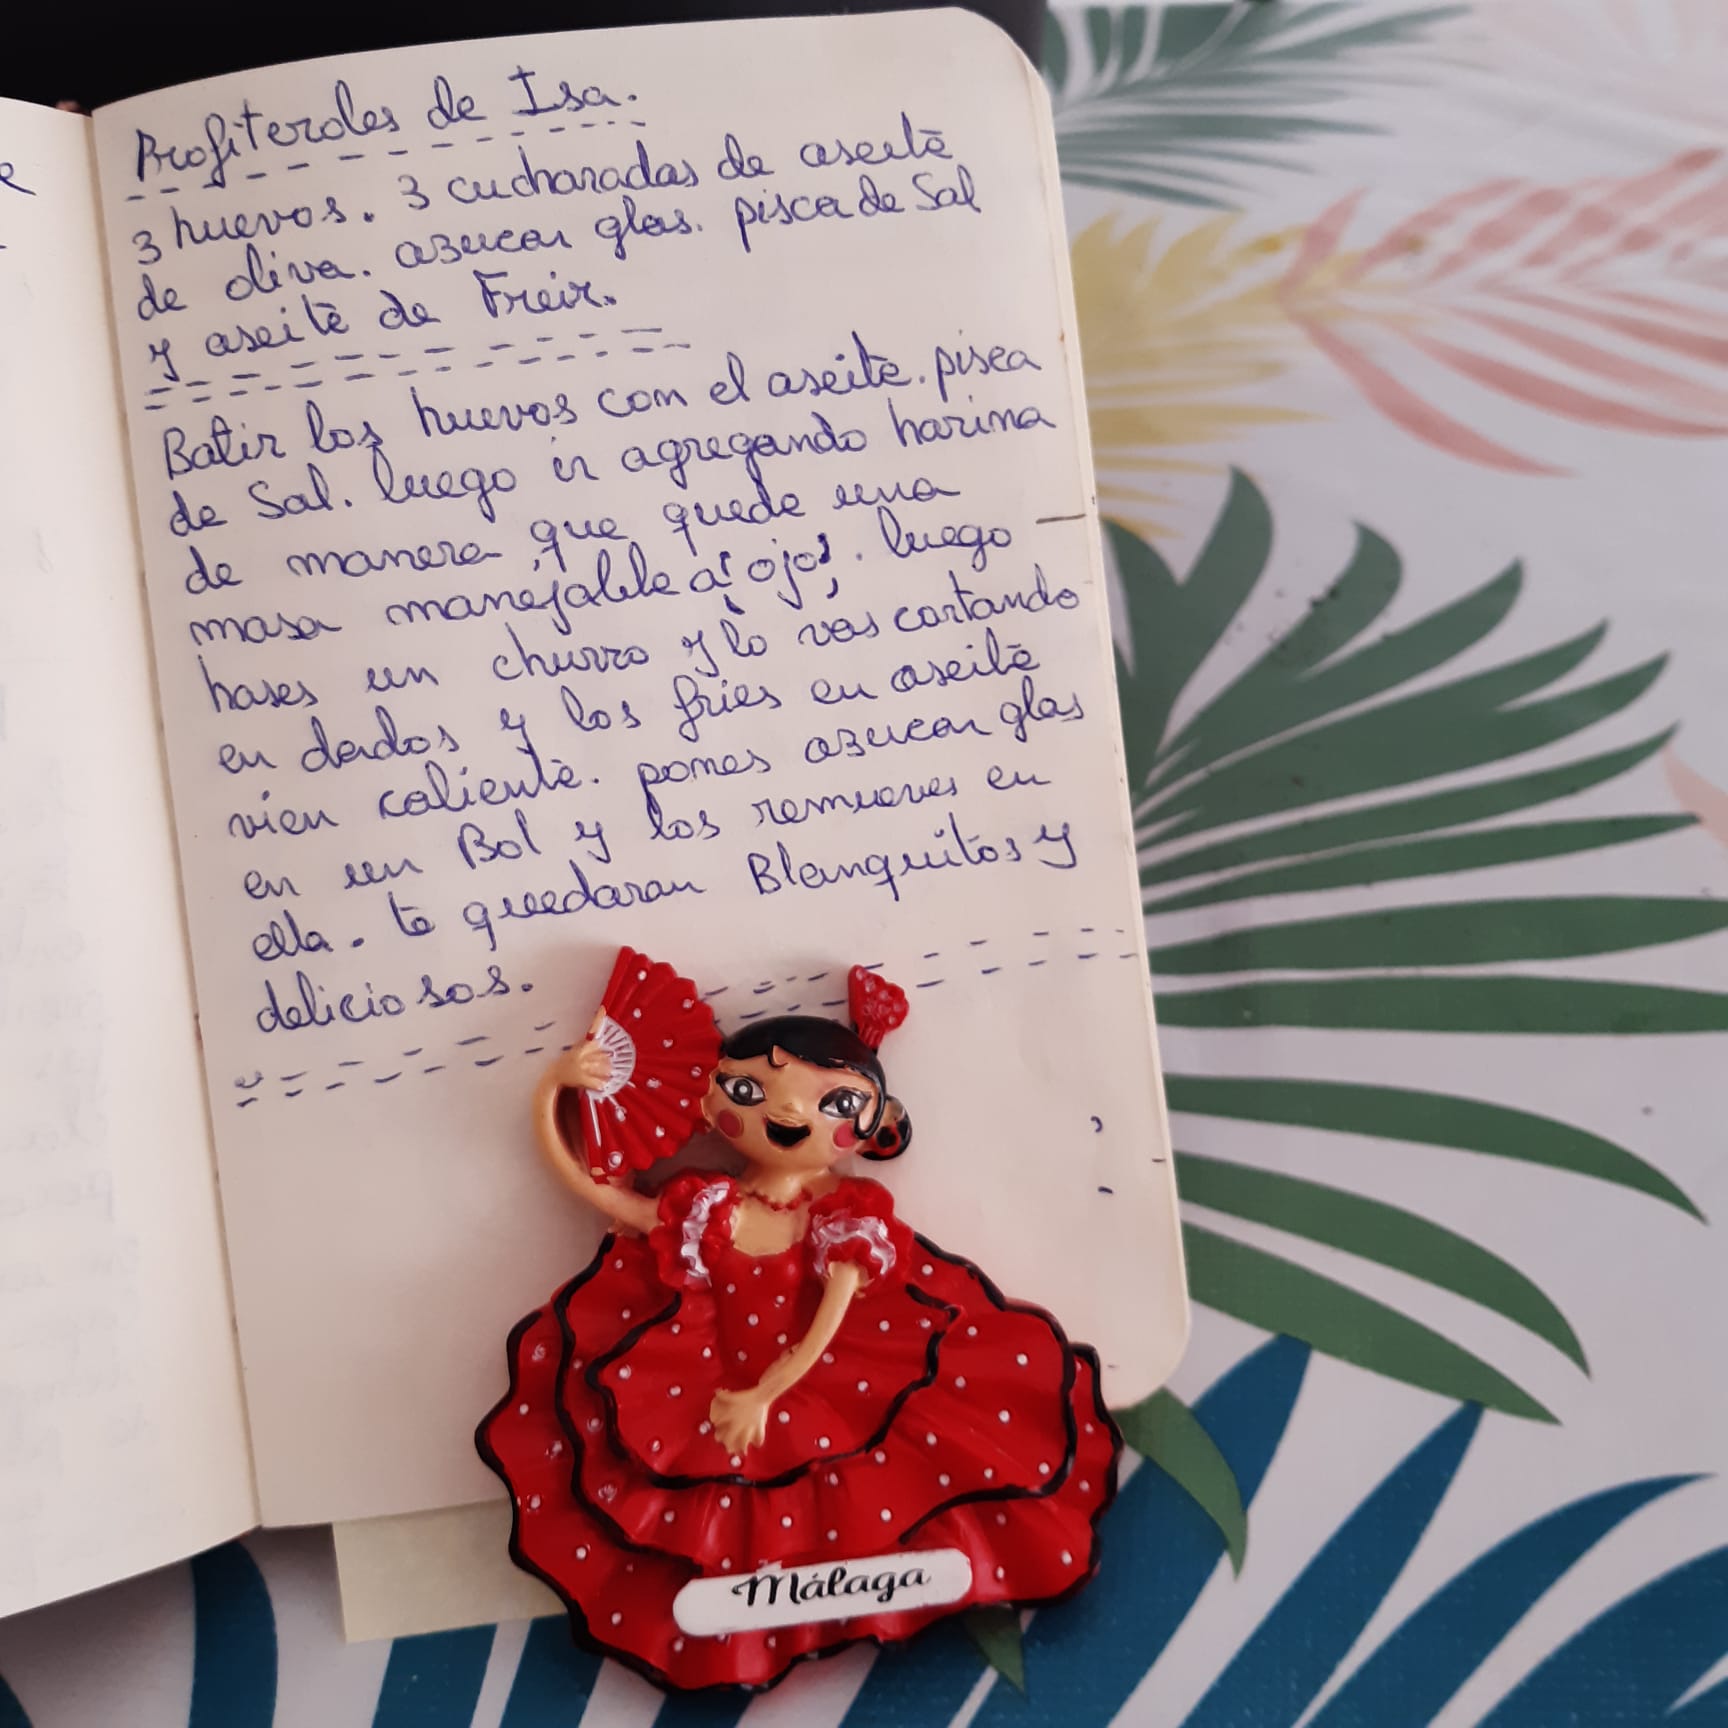 Profiteroles de Isa.
3 huevos. 3 cucharadas de aseite
de oliva. asucar glas. pisca de Sal
y aseite de Freir.
Batir los huevos con el aseite. pisca
de Sal. luego ir agregando harina
de manera que quede una
masa manejable a "ojo". luego
hases un churro y lo vas cortando
en dados y los fries en aseite
vien caliente. pones asucar glas
en un Bol y los remueves en
ella. te quedaran Blanquitos y
deliciosos.
Málaga